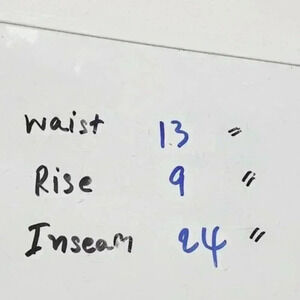 Waist 13 "
Rise 9 "
Inseam 24 "